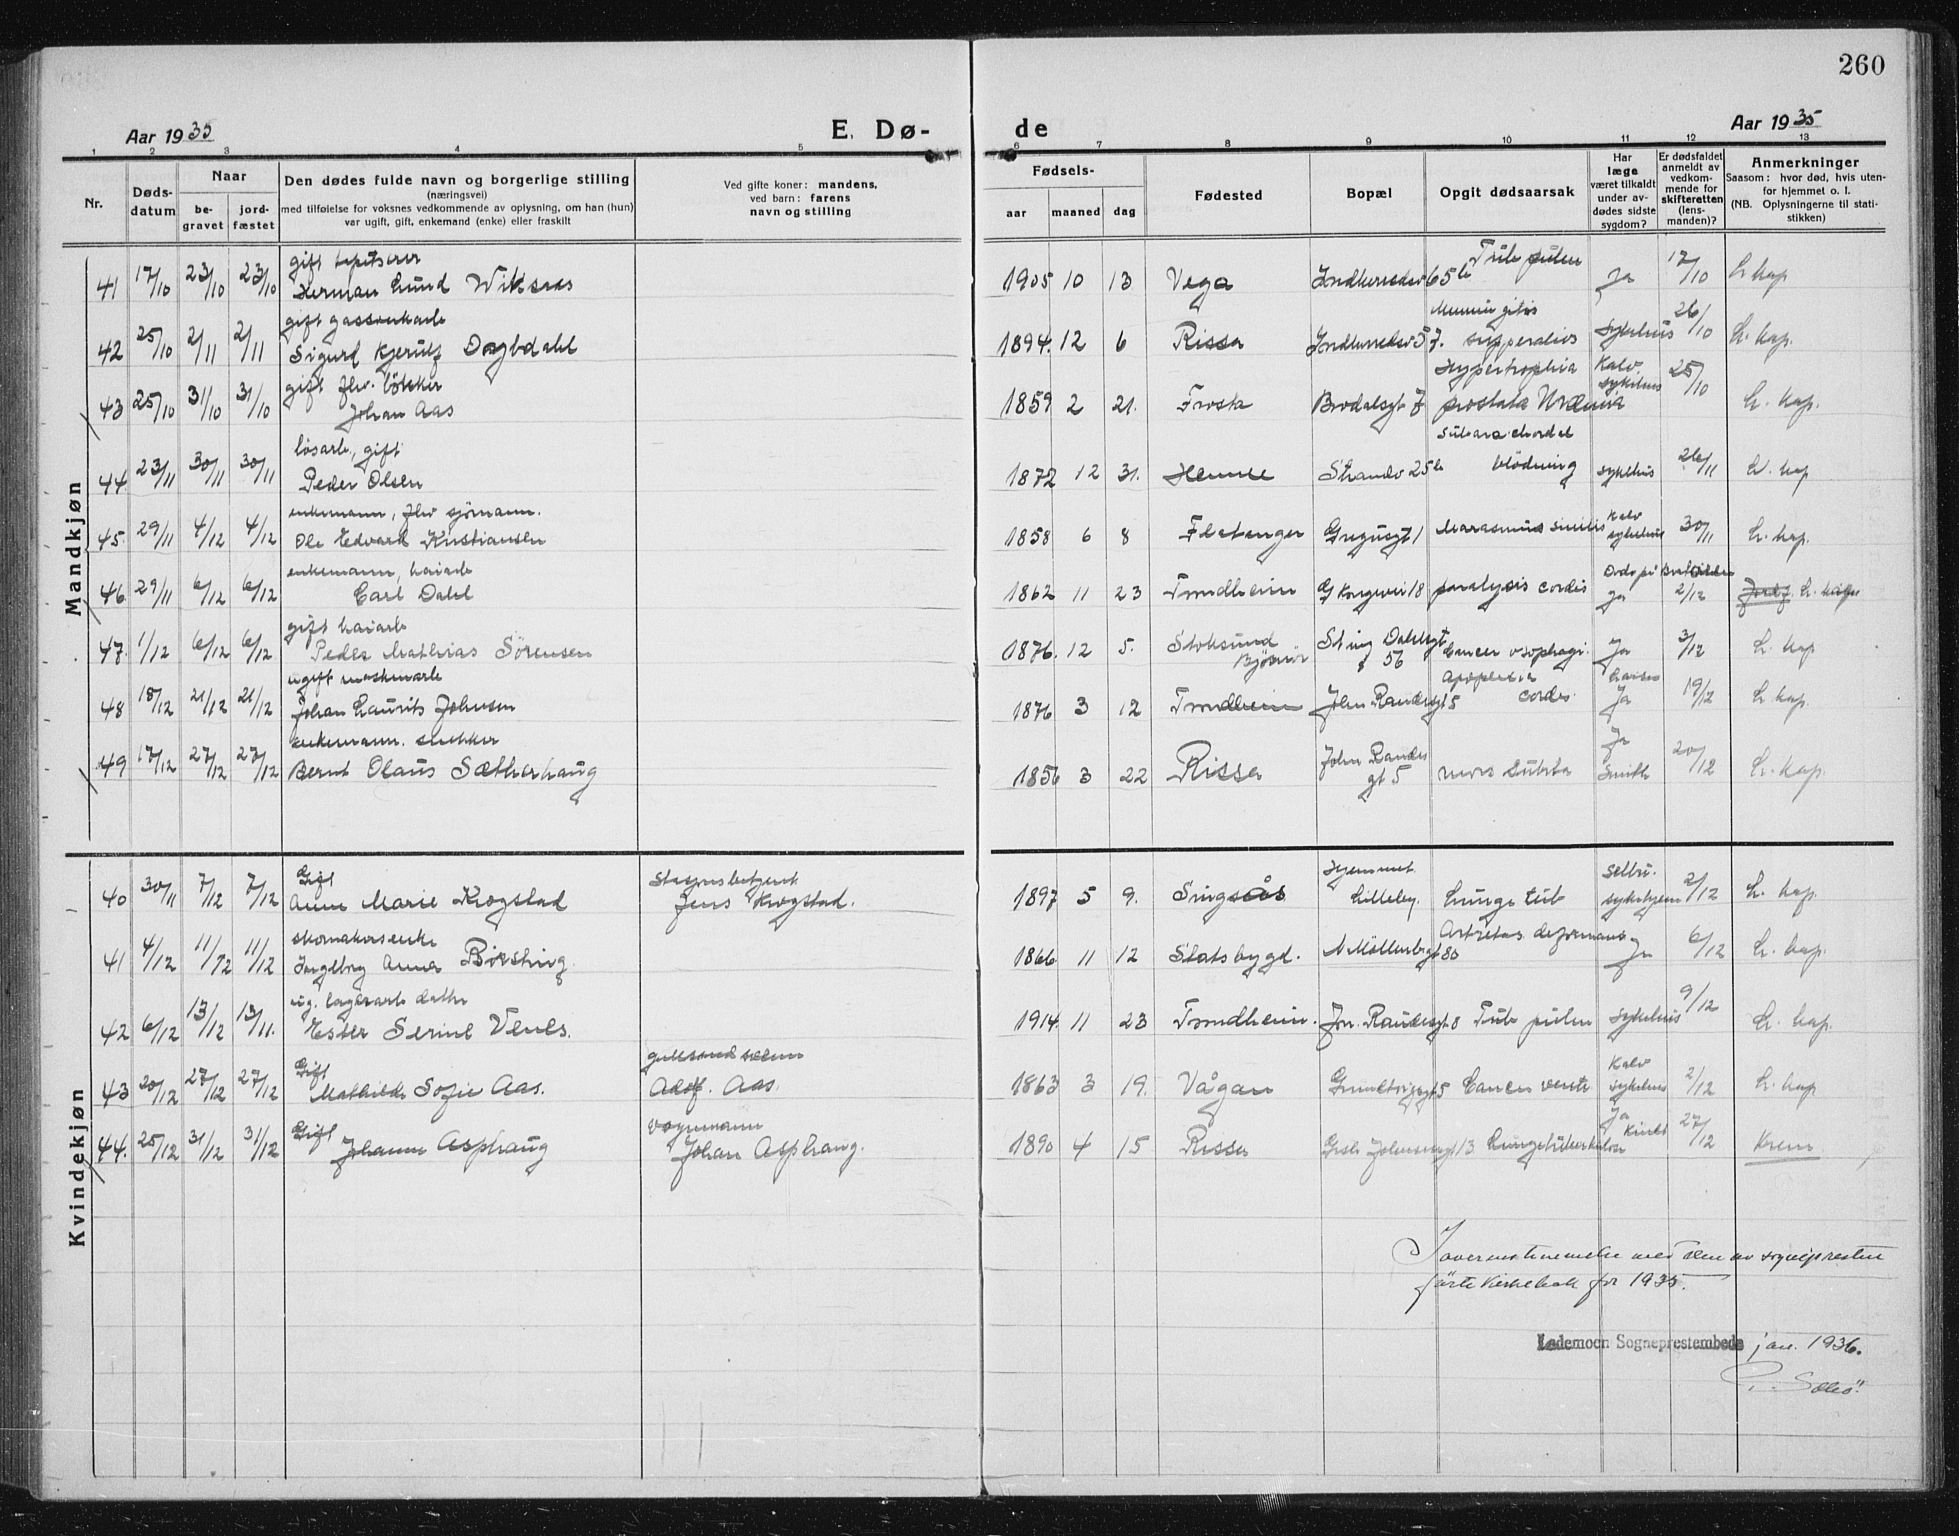 260
Aar 1935
E. Dø-
de
Aar 1935
1 2 3 4 5 6 7 8 9 10 11 12 13
Nr.
Døds-
datum
Naar
be-
gravet
jord-
fæstet
Den dødes fulde navn og borgerlige stilling
(næringsvei)
med tilføielse for voksnes vedkommende av oplysning, om han (hun)
var ugift, gift, enkemand (enke) eller fraskilt
Ved gifte koner: mandens,
ved barn: farens
navn og stilling
Fødsels-
aar maaned dag
Fødested
Bopæl
Opgit dødsaarsak
Har
læge
været tilkaldt
under av-
dødes sidste
sygdom?
Er dødsfaldet
anmeldt av
vedkom-
mende for
skifteretten
(lens-
manden)?
Anmerkninger
Saasom: hvor død, hvis uten-
for hjemmet o. l.
(NB. Oplysningerne til stati-
stikken)
Mandkjøn
gift tapetserer Tub pulm
41 17/10 23/10 23/10 Herman Lund Wiksaas 1905 10 13 Vega 65 b Ja 17/10 L. kap
gift
42 25/10 2/11 2/11 Sigurd Kjerulf 1894. 12 6 Rissa sykehus 26/10 L. kap.
gift fhv. bøkker Hypertrophia Kalv.
43 25/10 31/10 31/10 Johan Aas 1859 2 21. Frosta Brodalsgt 7 prostata Uræmia sykehus 25/10 L. kap.
løsarb, gift
44 23/11 30/11 30/11 Peder Olsen 1872 12 31. Hemne Strandv 25 b blödning sykehus 26/11 L. kap
enkemann, fhv sjømann. Kalv
45. 29/11 4/12 4/12 Ole Edvard Kristiansen 1858 6 8 Flatanger Gregusgt 1 Marasmus senilis sykehus 30/11 L. kap.
enkemann, havarb
46 29/11 6/12 6/12 Carl Dahl 1862 11 23 Trondheim Kongevei 18 paralysis cordis Ja 2/12 L. kap
gift havarb
47. 1/12 6/12 6/12 Peder Mathias Sörensen 1876. 12 5. Stoksund Bjørnör 56 Cancer osophagi. Ja 3/12 L. kap
ugift maskinarb
48 18/12 21/12 21/12 Johan Laurits Johnsen 1876 3 12 Trondheim John Randesgt 5 cordis Ja 19/12 L. kap.
enkemann. snekker Ja
49 17/12 27/12 27/12 Bernt Olaus Sætherhaug 1856 3 22 Rissa John Randes gt 5 20/12 L. kap.
Kvindekjøn
Gift Hjemmet Selbu.
40 30/11 7/12 7/12 Anne Marie Krogstad Jens Krogstad. 1897 5 9. Singsås Lilleby. Lunge tub sykehjem 2/12 L. kap.
skomakersenke Artritas deformans
41 4/12 11/12 11/12 Ingeborg Anna 1866 11 12 Statsbygd. N Möllenbergt 80 Ja 6/12 L. kap.
ug. lagerarb datter
42 6/12 13/12 13/11. Ester Serine 1914. 11 23 Trondheim. Jon. Randesgt 8 Tub pulm sykehus 9/12 L. kap.
Gift Kalv
43 20/12 27/12 27/12 Mathilde Sofie Aas. Adolf. Aas. 1863 3 19. Vågan Grundtvigsgt 5 Cancer ventr sykehus 2/12 L. kap
Gift vognmann Ja
44. 25/12 31/12 31/12 Johanne Asphaug Johan Asphaug. 1890 4 15 Rissa Gisle Johnsensgt 13 Lungetuberkulose 27/12 Krem
I overensstemmelse med den av sognepresten
förte Kirkebok for 1935.
Lademoen Sogneprestembede jan. 1936.